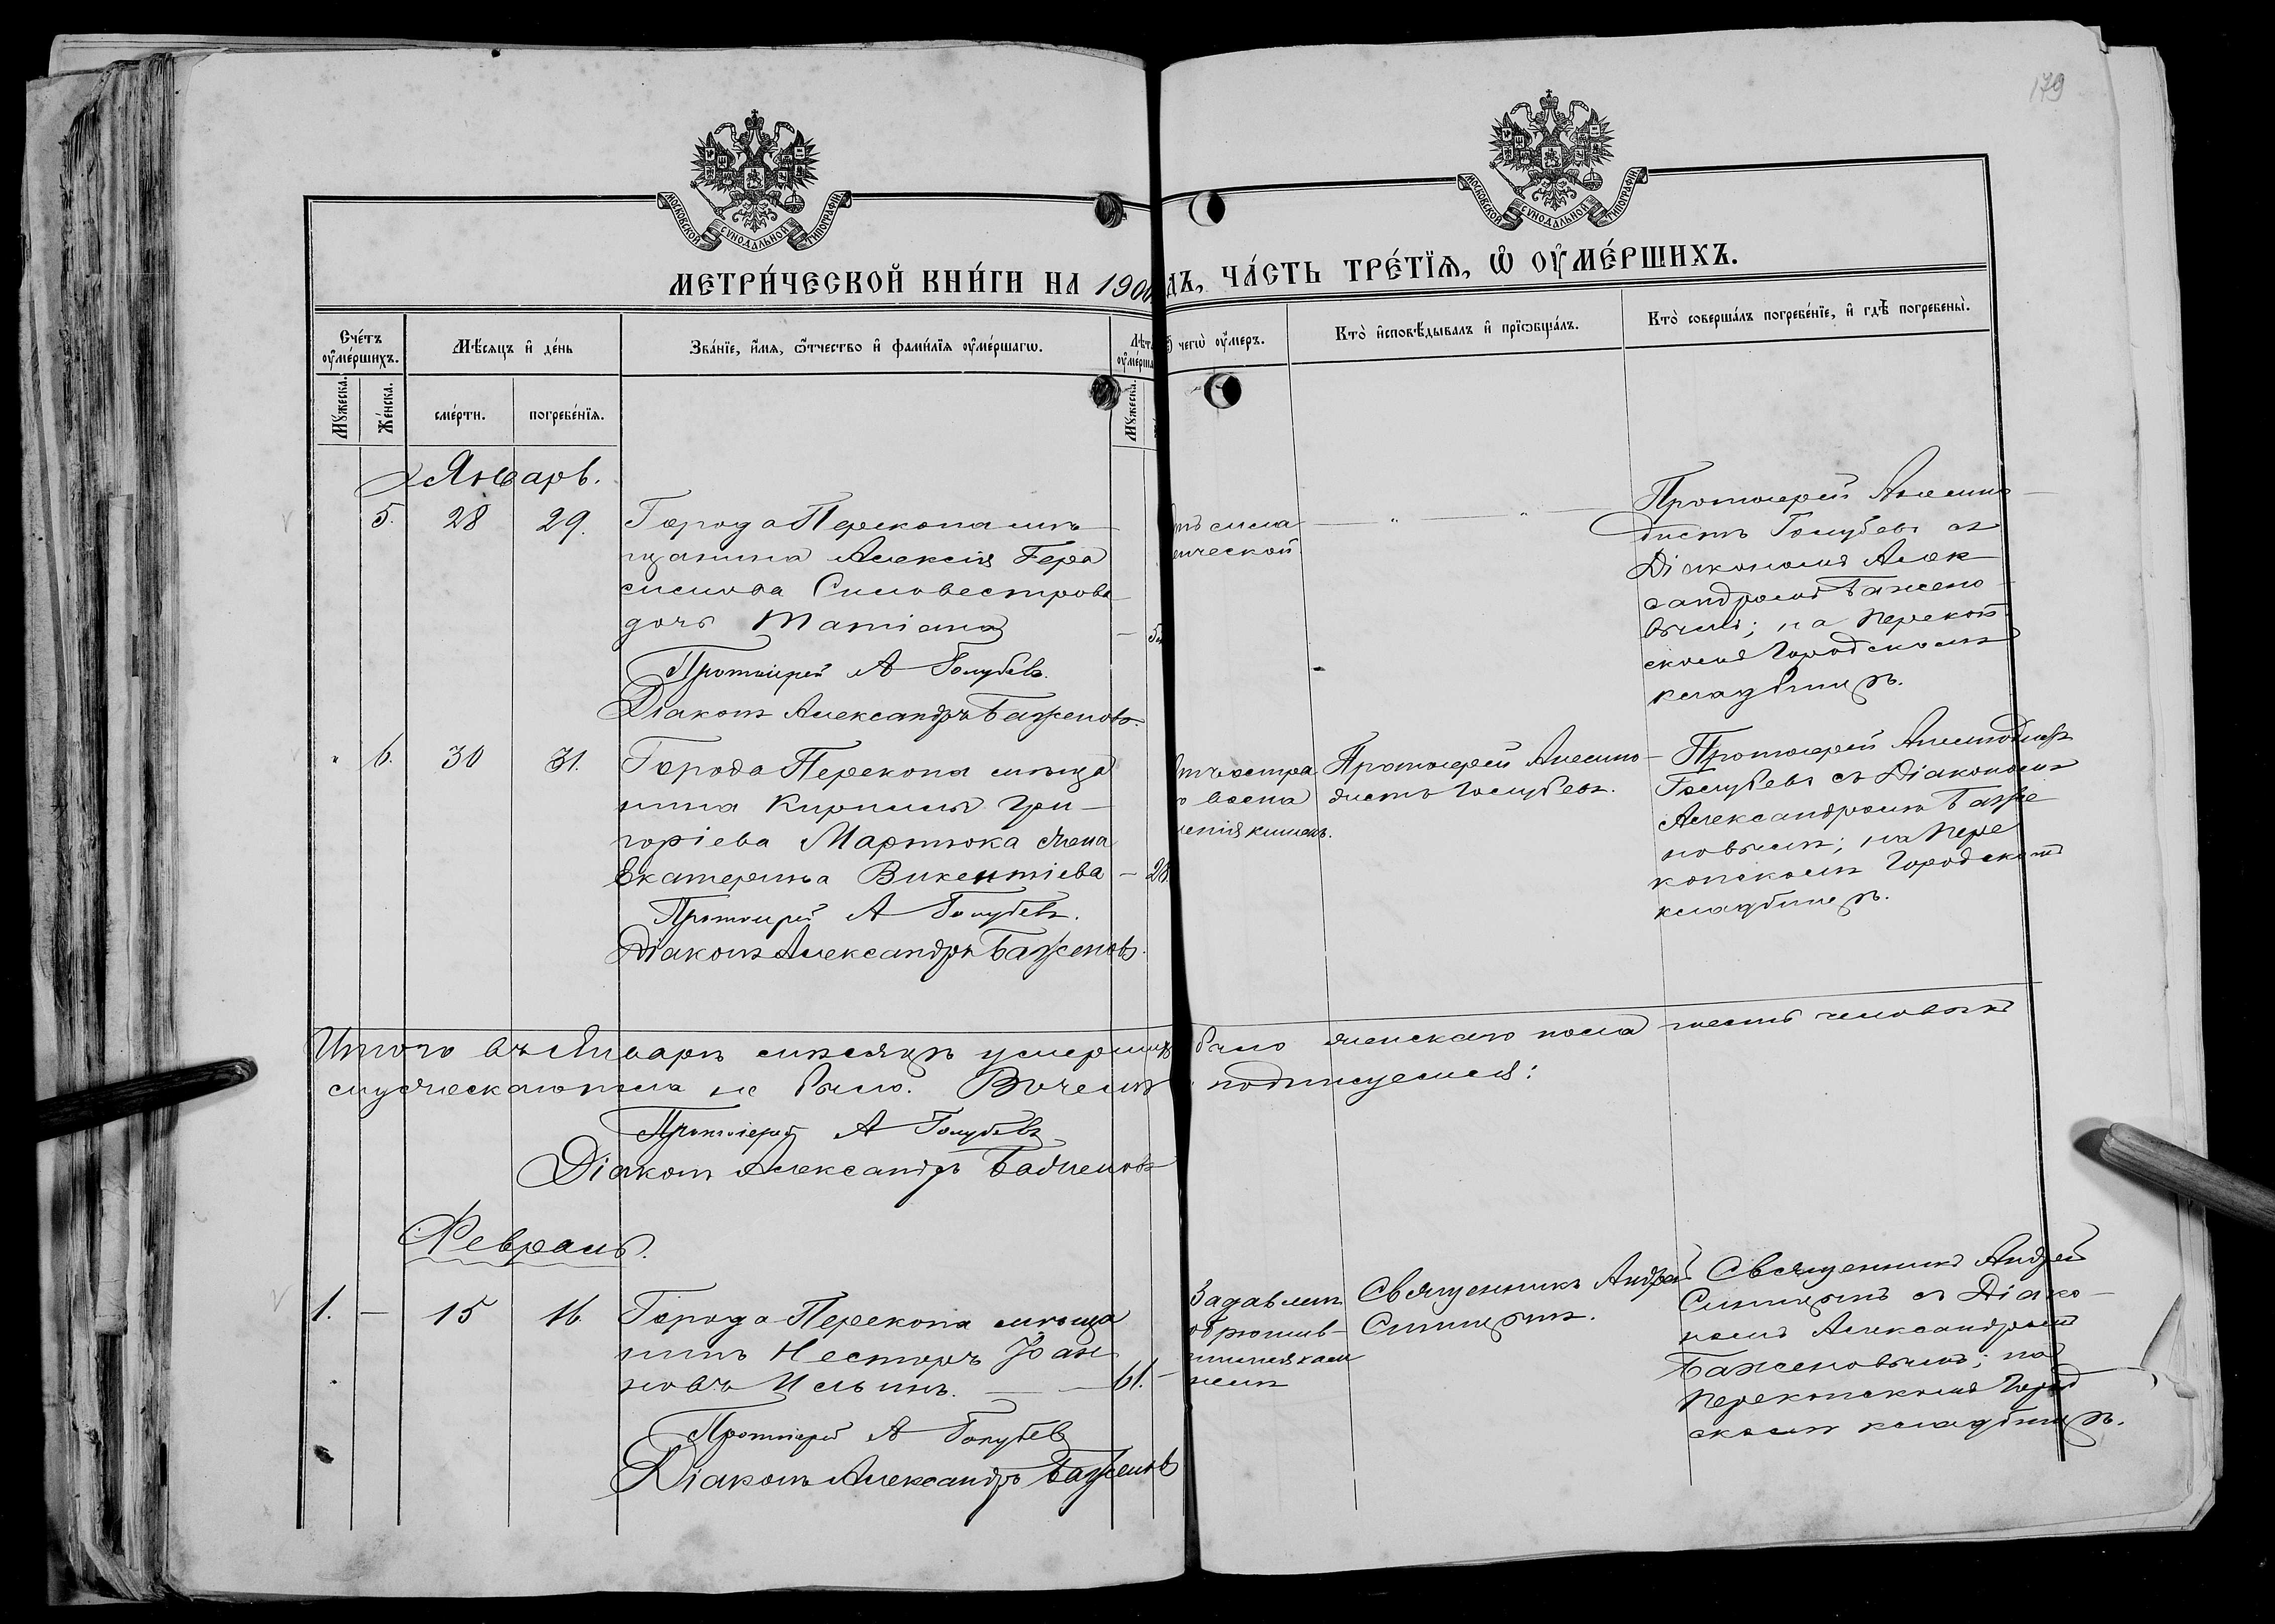 179
МОСКОВСКОЙ СѴНОДАЛЬНОЙ ТИПОГРАФІИ.
МОСКОВСКОЙ СѴНОДАЛЬНОЙ ТИПОГРАФІИ.
МЕТРИ́ЧЕСКОЙ КНИ́ГИ НА 190
ДЪ, ЧА́СТЬ ТРЕ́ТЇѦ, Ѡ ОУМЕ́РШИХЪ.
Сче́тъ оуме́ршихъ.
Мѣ́сѧцъ и де́нь
Зва́нїе, и́мѧ, ѻ́тчество и фами́лїѧ оуме́ршагѡ.
Лѣт
оуме́рша
чегѡ̀ оу́меръ.
Кто̀ и҆сповѣ́дывалъ и҆ прїѡбща́лъ.
Кто̀ соверша́лъ погребе́нїе, и҆ гдѣ̀ погребены̀.
Мꙋ́жеска.
Же́нска.
сме́рти.
погребе́нїѧ.
Мꙋ́жеска.
Январь.
5. 28 29.
Города Перекопа мѣ
щанина Алексія Гера
симова Сильвестрова
дочь Татіана
Протоіерей А Голубевъ.
Діаконъ Александръ Баженовъ.
ческой
Протоіерей
дистъ Голубевъ съ
Діакономъ Алек
сандромъ Бажено
вымъ; на Перекоп
скомъ Городскомъ
кладбищѣ.
" 6. 30 31.
Города Перекопа мѣща
нина Кирилла Гри-
горіева Мартюка жена
Екатерина Викентіева — 28
Протоіерей А Голубевъ.
Діаконъ Александръ Баженовъ.
остра
воспа
ленія кишекъ.
Протоіерей
дистъ Голубевъ.
Протоіерей
Голубевъ съ Діакономъ
Александромъ Баже
новымъ; на Пере
копскомъ Городскомъ
кладбищѣ.
Итого въ Январѣ мѣсяцѣ умершихъ было женскаго пола шесть человѣкъ
мужескаго пола не было. Въ чемъ подписуемся:
Протоіерей А Голубевъ
Діаконъ Александръ Баженовъ
Февраль.
1. — 15 16
Города Перекопа мѣща
нинъ Несторъ Іоан
новъ Ильинъ. — 61. —
Протоіерей А Голубевъ
Діаконъ Александръ Баженовъ
Задавленъ
обрушив-
шимся кам
немъ
Священникъ Андрей
Синицынъ.
Священникъ Андрей
Синицынъ съ Діако-
номъ Александромъ
Баженовымъ; на
Перекопскомъ Город
скомъ кладбищѣ.